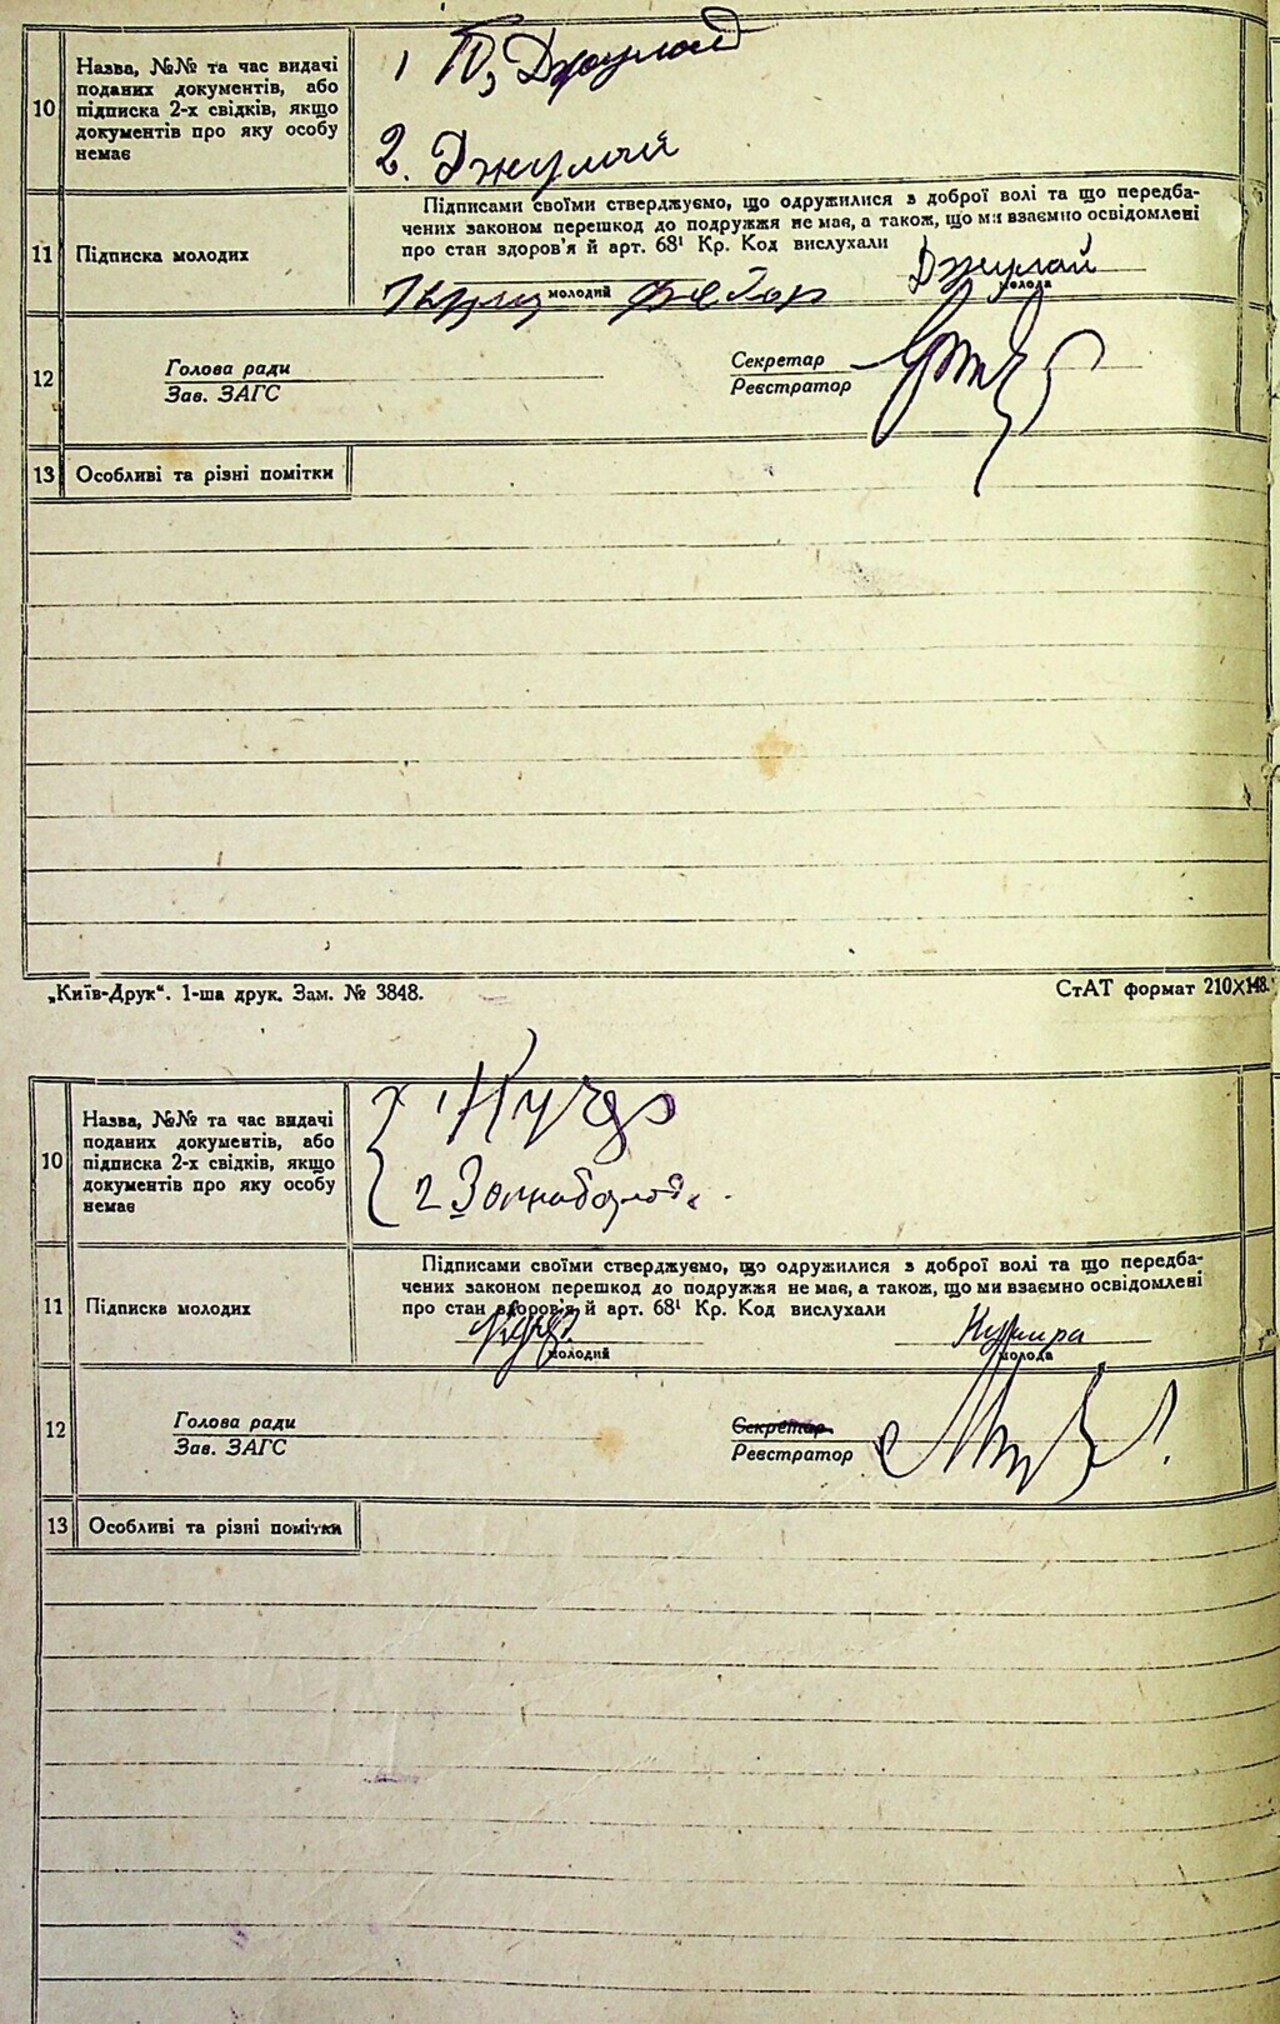 10
Назва, №№ та час видачі
поданих документів, або
підписка 2-х свідків, якщо
документів про яку особу
немає
1
2. Джулай
11
Підписка молодих
Підписами своїми стверджуємо, що одружилися з доброї волі та що передба-
чених законом перешкод до подружжя не має, а також, що ми взаємно освідомлені
про стан здоров'я й арт. 68¹ Кр. Код вислухали
Джулай
молодий
молода
12
Голова ради
Зав. ЗАГС
Секретар
Реєстратор
13
Особливі та різні помітки
„Київ-Друк“. 1-ша друк. Зам. № 3848.
СтАТ формат 210X148.
10
Назва, №№ та час видачі
поданих документів, або
підписка 2-х свідків, якщо
документів про яку особу
немає
1
2
11
Підписка молодих
Підписами своїми стверджуємо, що одружилися з доброї волі та що передба-
чених законом перешкод до подружжя не має, а також, що ми взаємно освідомлені
про стан здоров'я й арт. 68¹ Кр. Код вислухали
молодий
молода
12
Голова ради
Зав. ЗАГС
Секретар
Реєстратор
13
Особливі та різні помітки